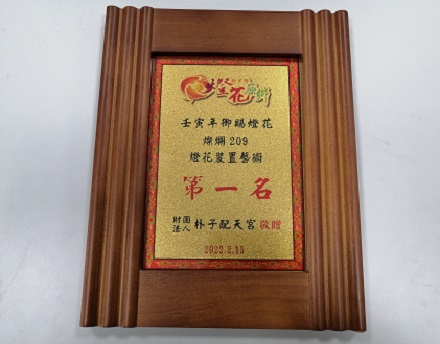 燈花原鄉
壬寅年御賜燈花
燦爛209
燈花裝置藝術
第一名
財團法人 朴子配天宮 敬贈
2022.2.15